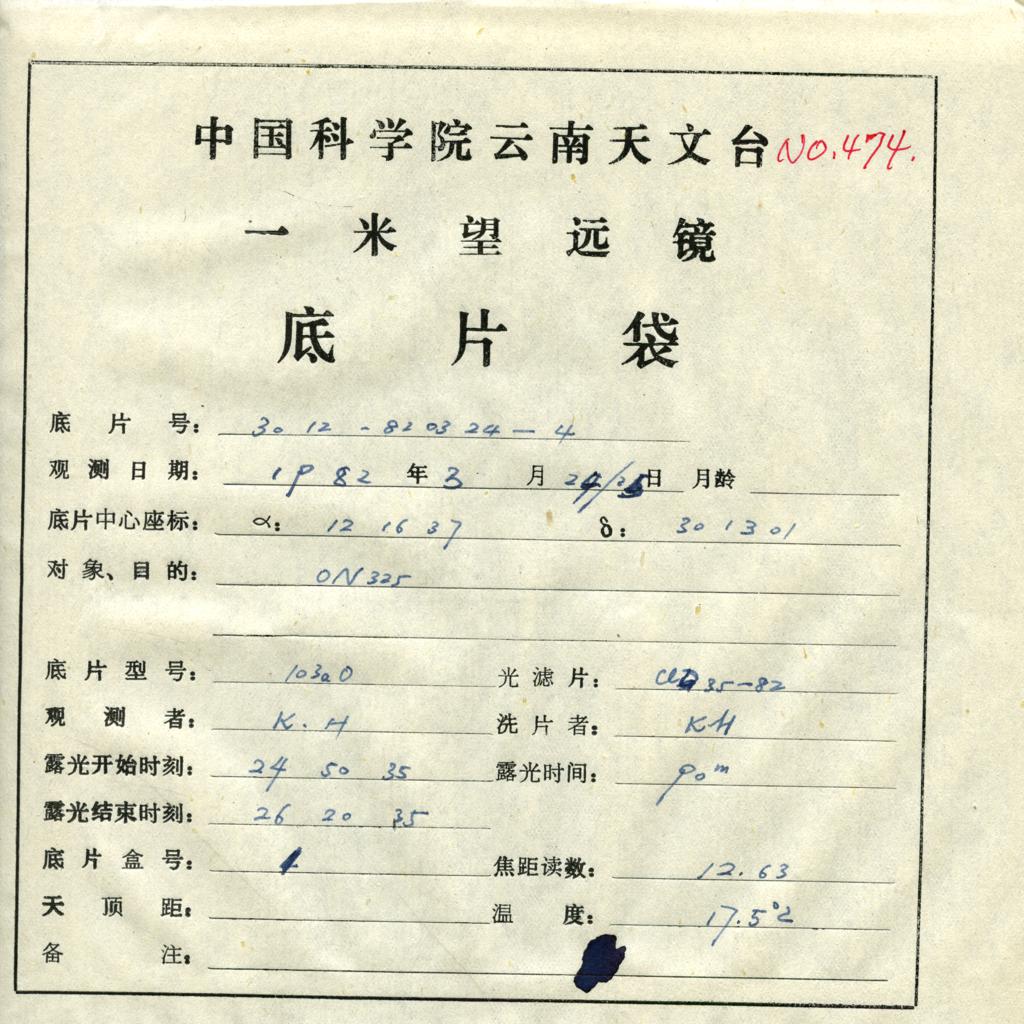 中国科学院云南天文台 NO.474.
一米望远镜
底片袋
底片号: 3012-820324-4
观测日期: 1982年3月24/25日 月龄
底片中心座标: α: 12 16 37 δ: 30 13 01
对象、目的: ON325
底片型号: 103aO 光滤片: 35-82
观测者: K.H 洗片者: KH
露光开始时刻: 24 50 35 露光时间: 90m
露光结束时刻: 26 20 35
底片盒号: 1 焦距读数: 12.63
天顶距: 温度: 17.5°C
备注: